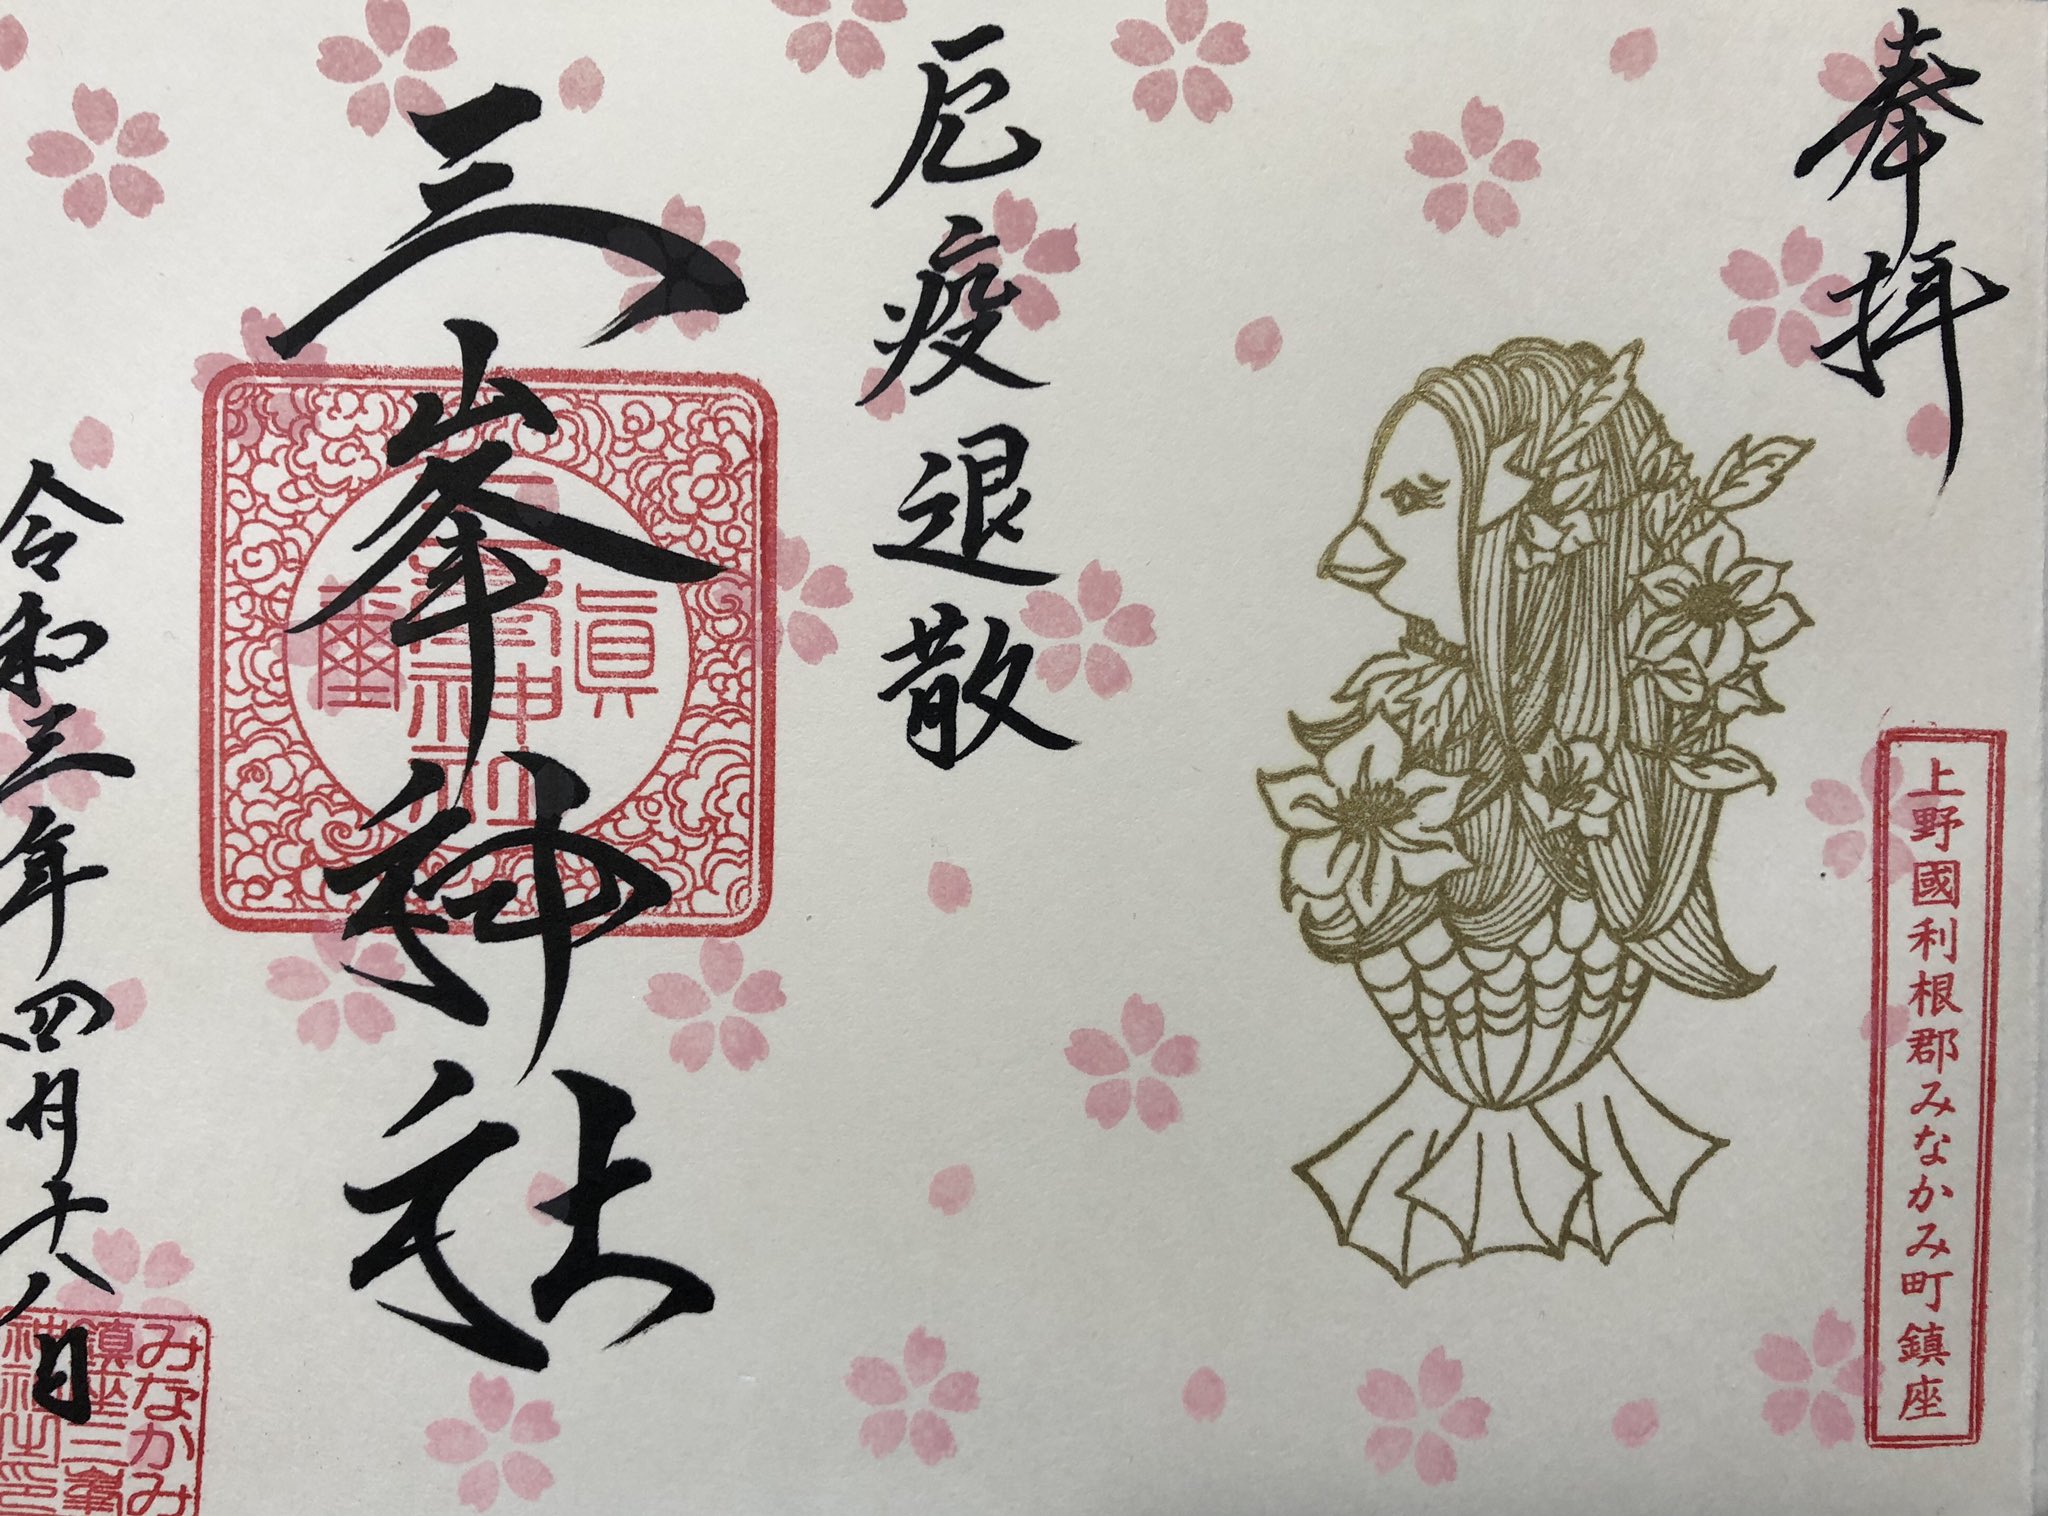 奉拝
上野國利根郡みなかみ町鎮座
厄疫退散
三峯神社
三峯神社
令和三年四月十八日
みなかみ
鎮座三峯
神社之印